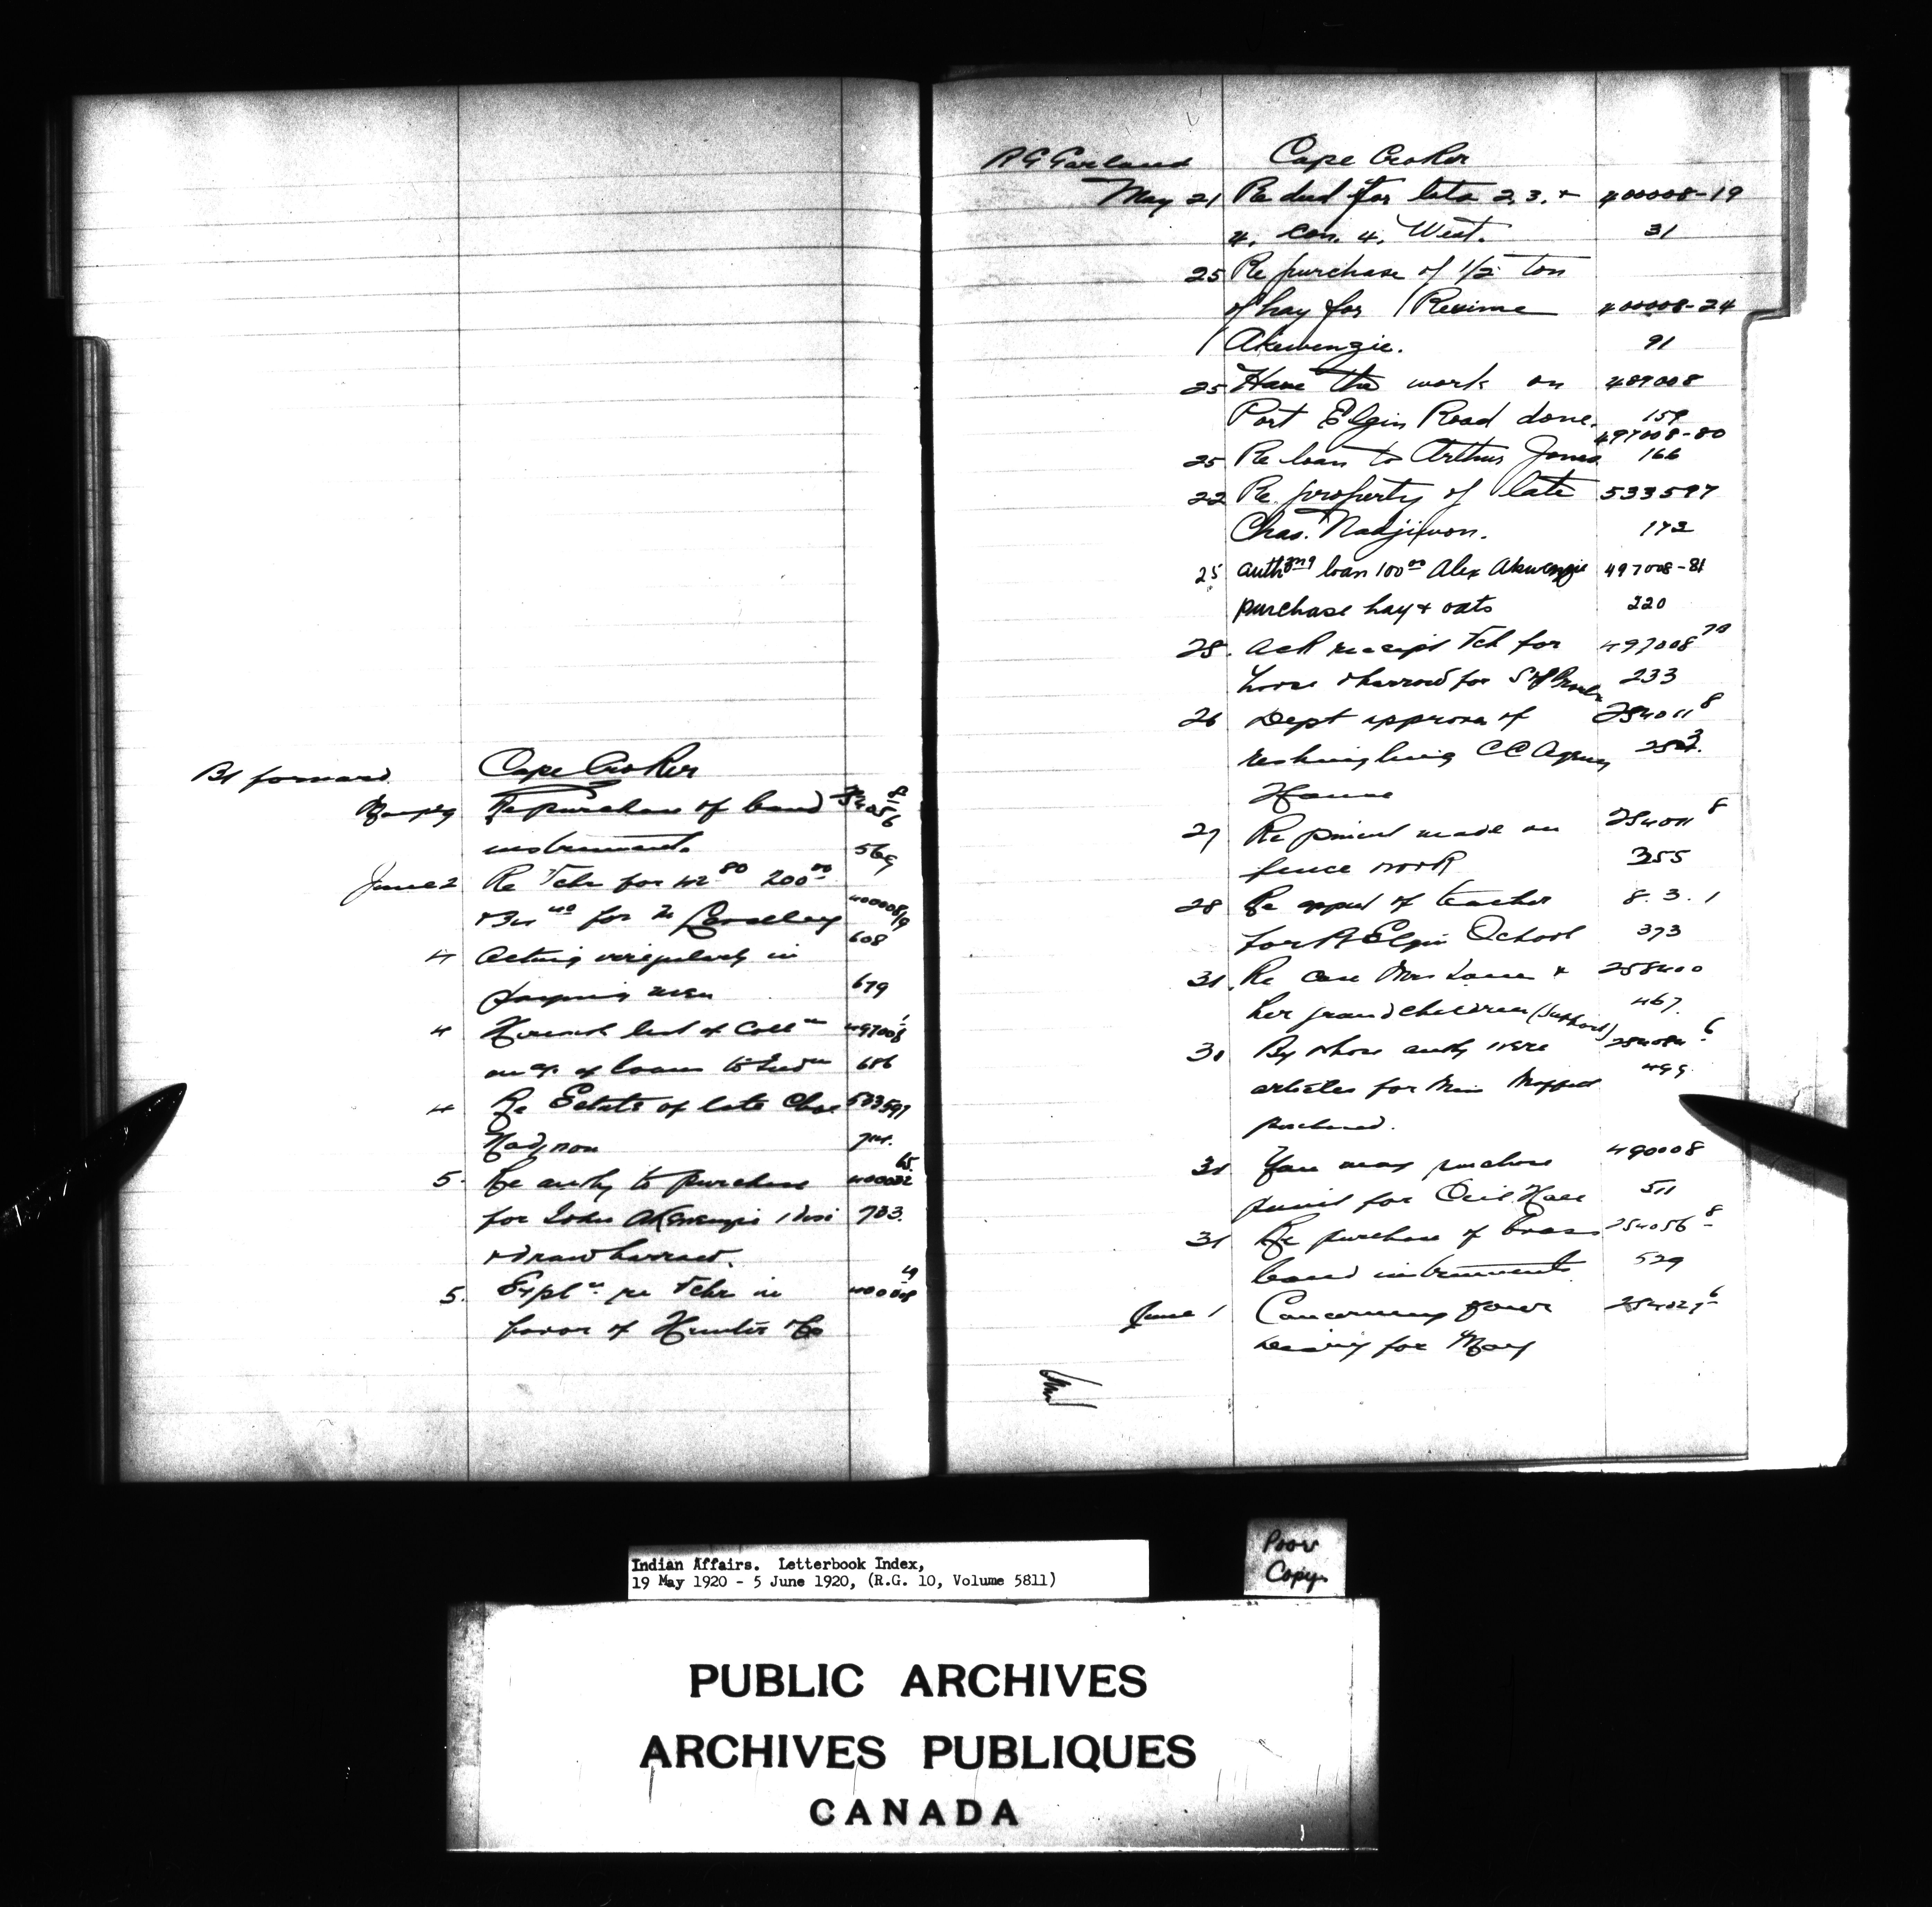 Bt forward. Cape Croker
Re purchase of band
instruments 569
June 2 Re Tchr for 42 80 200 00
for
608
4 Acting irregularly in
men 679
4 list of Coll n 497008
of loans to Ind n 686
4 Re Estate of late Chas 533597
Nadjiwon
5. Re authy to purchase
for John Akewenzie 1 Disc 703.
& Draw harrow.
5. Expl n re Tchr in 400008 19
favor of Hunter & Co
R G Garland Cape Croker
May 21 Re deed for lots 2, 3. & 400008-19
4. Con. 4. West. 31
25 Re purchase of 1/2 ton
of hay for 400008-24
Akewenzie. 91
25 Have the work on 489008
Port Elgin Road done. 159
497008-80
25 Re loan to Arthur Jones 166
22 Re. property of late 533597
Chas. Nadjiwon. 172
25 authzng loan 100 00 Alex Akewenzie 497008-81
purchase hay & oats 220
25. ack receipt Tch for 497008 70
horse & harrow for 233
26 Dept approves of 254011 8
reshingling C C Agency
House
27 Re made on 254011 8
fence work 355
28 Re appmt of teacher 8. 3. 1
for Pt Elgin School 373
31. Re case Mrs & 258400
her grandchildren (support) 467.
31 By whose authy were 6
articles for Miss Moffatt 499
purchased.
31 You may purchase 490008
paint for Ccil Hall 511
31 Re purchase of brass 254056 8
band instruments. 529
June 1 Concerning 6
for May
Indian Affairs. Letterbook Index,
19 May 1920 - 5 June 1920, (R.G. 10, Volume 5811)
Poor
Copy.
PUBLIC ARCHIVES
ARCHIVES PUBLIQUES
CANADA